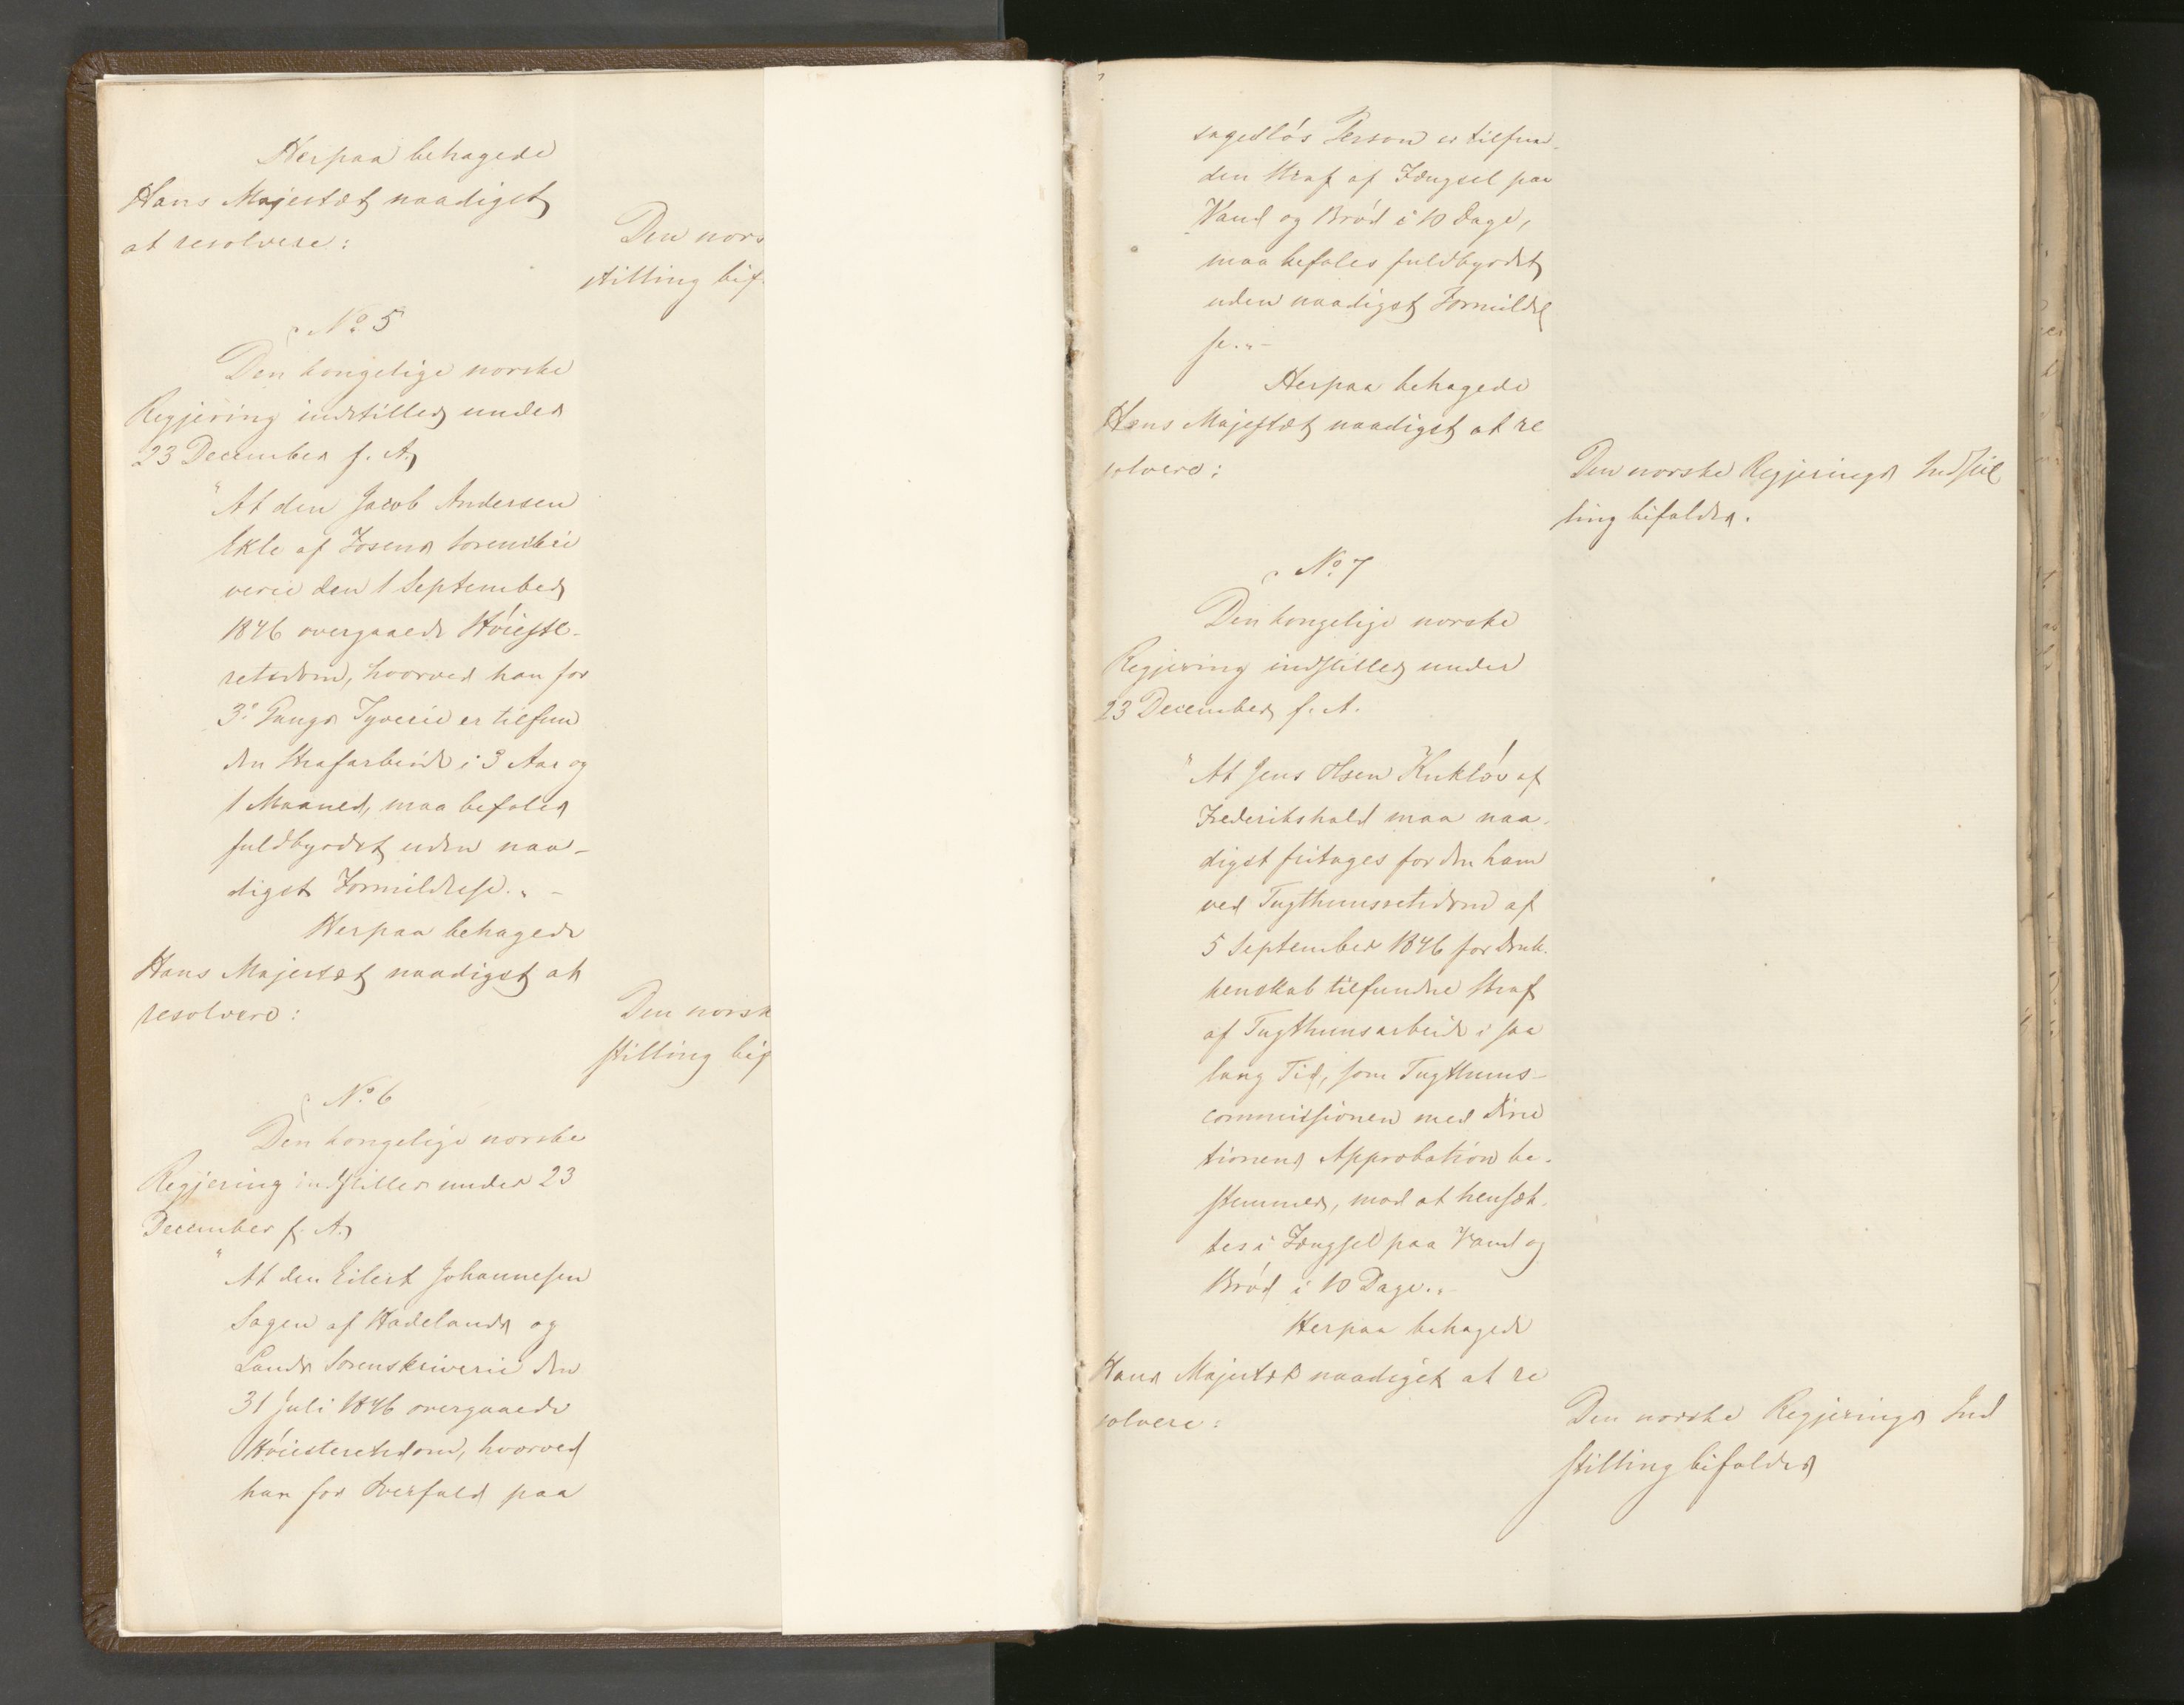 Herpaa behagede
Hans Majestæt naadigst
at resolvere:
Den nors
stilling bif
No. 5
Den kongelige norske
Regjering indstiller under
23 December f. A.,
"At den Jacob Andersen
af Fosens Sorenskri
verie den 1 September
1846 overgaaede Høieste-
retsdom, hvorved han for
3die Gangs Tyverie er tilfun
den Strafarbeide i 3 Aar og
1 Maaned, maa befales
fuldbyrdet uden naa-
digst Formildelse." -
Herpaa behagede
Hans Majestæt naadigst at
resolvere:
Den norsk
stilling bif
No. 6
Den kongelige norske
Regjering indstiller under 23
December f. A.,
"At den Eilert Johannesen
Sagen af Hadelands og
Lands Sorenskriverie den
31 Juli 1846 overgaaede
Høiesteretsdom, hvorved
han for Overfald paa
sagesløs Person er tilfun-
den Straf af Fængsel paa
Vand og Brød i 10 Dage,
maa befales fuldbyrdet
uden naadigst Formildel
se." -
Herpaa behagede
Hans Majestæt naadigst at re
solvere:
Den norske Regjerings Indstil
ling bifaldes.
No. 7
Den kongelige norske
Regjering indstiller under
23 December f. A.
"At Jens Olsen Kukløv af
Frederikshald maa naa-
digst fritages for den ham
ved Tugthuusretsdom af
5 September 1846 for Druk-
kenskab tilfundne Straf
af Tugthuusarbeide i saa
lang Tid, som Tugthuus-
commissionen med Direc
tionens Approbation be-
stemmer, mod at hensæt-
tes i Fængsel paa Vand og
Brød i 10 Dage." -
Herpaa behagede
Hans Majestæt naadigst at re
solvere:
Den norske Regjerings Ind
stilling bifaldes